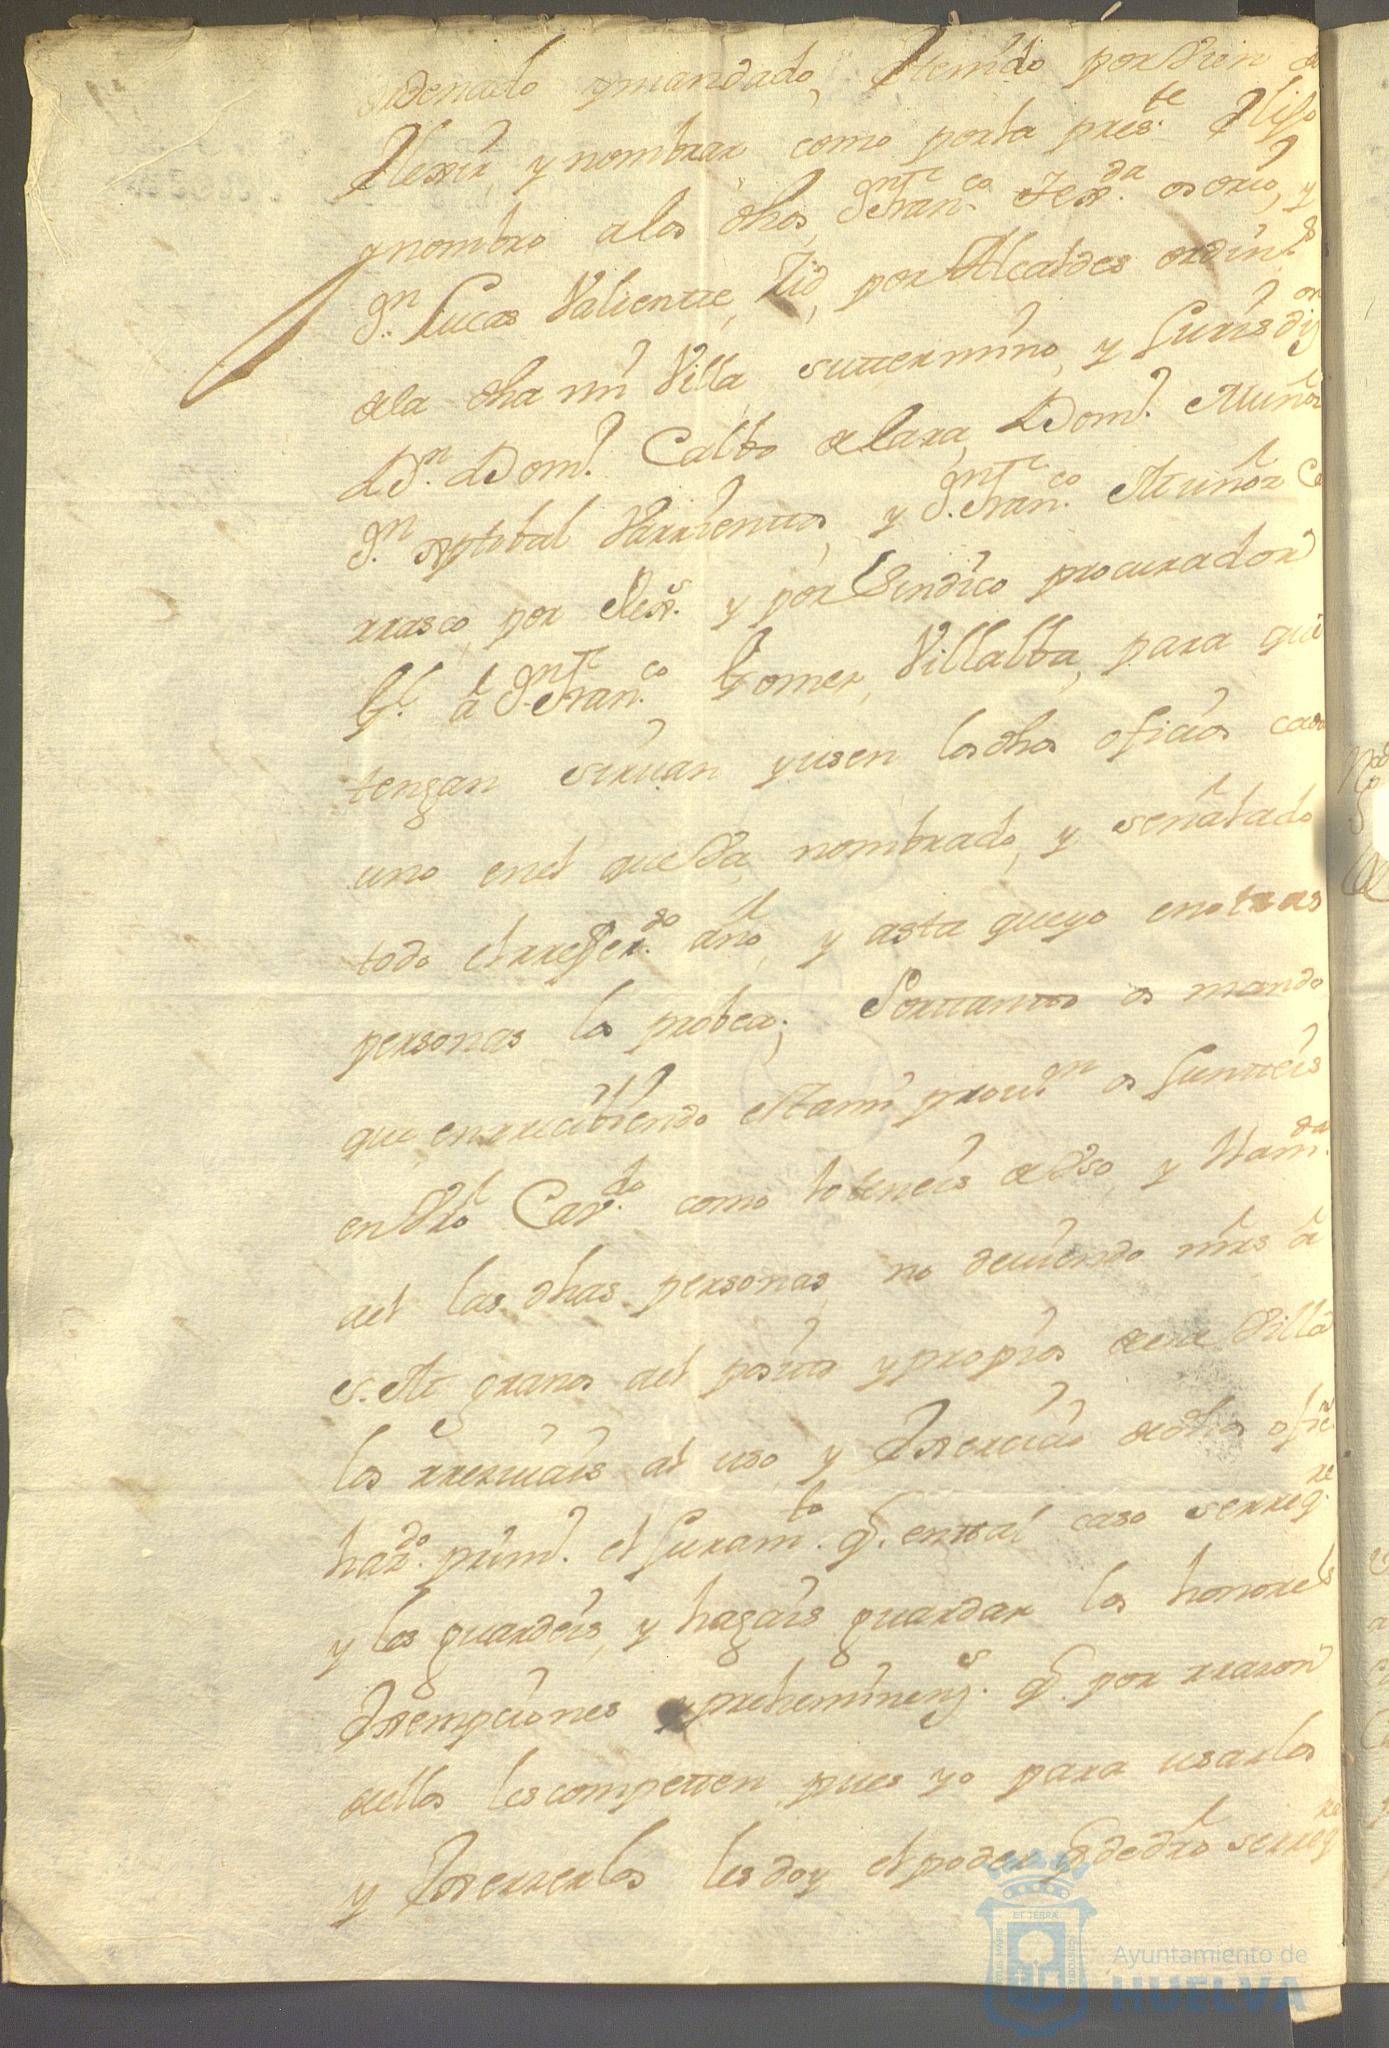 ordenado y mandado, Etenido por vien de
Elexir, y nombrar como por la pres.te Elijo
y nombro a los dhos, Dn Fran.co Zerv.da osorio, y
Dn Lucas Valiente, Zid, por Alcaldes ordin.s
de la dha mi Villa, suttermino, y Jurisdiz.on
A Dn Dom.o Calbo de lara, A Dom.o Muñoz
Dn Xptobal Varrientos, y Dn Fran.co Muñoz Ca
rrasco, por Rex.s y por Sindico procurador
Gl. a Dn Fran.co Gomez, Villalba, para que
tengan sirvan y usen los dhos oficios cada
uno en el que va, nombrado, y señalado
todo el rrefer.do año, y asta que yo en otras
personas los probea; Porttanto os mando
que, en rrecibiendo esta mi prov.on os Junteis
en vro Cav.do como lo teneis de Vso, y llam.da
ael las dhas personas, no deviendo mrs a
S.M. granos del posito y propios de esa Villa
los rrecivais al uso, y Exercicio de dhos ofic.s
haz.do prim.o el Juram.to q. en tal caso se rreq.re
y los guardeis, y hagais guardar los honores
Exempciones y preheminenz.s q. por rrazon
dellos les competten pues yo para usarlos
y Exercerlos les doy el poder q. de dro se rreq.re
ET TERRA
Ayuntamiento de
HUELVA